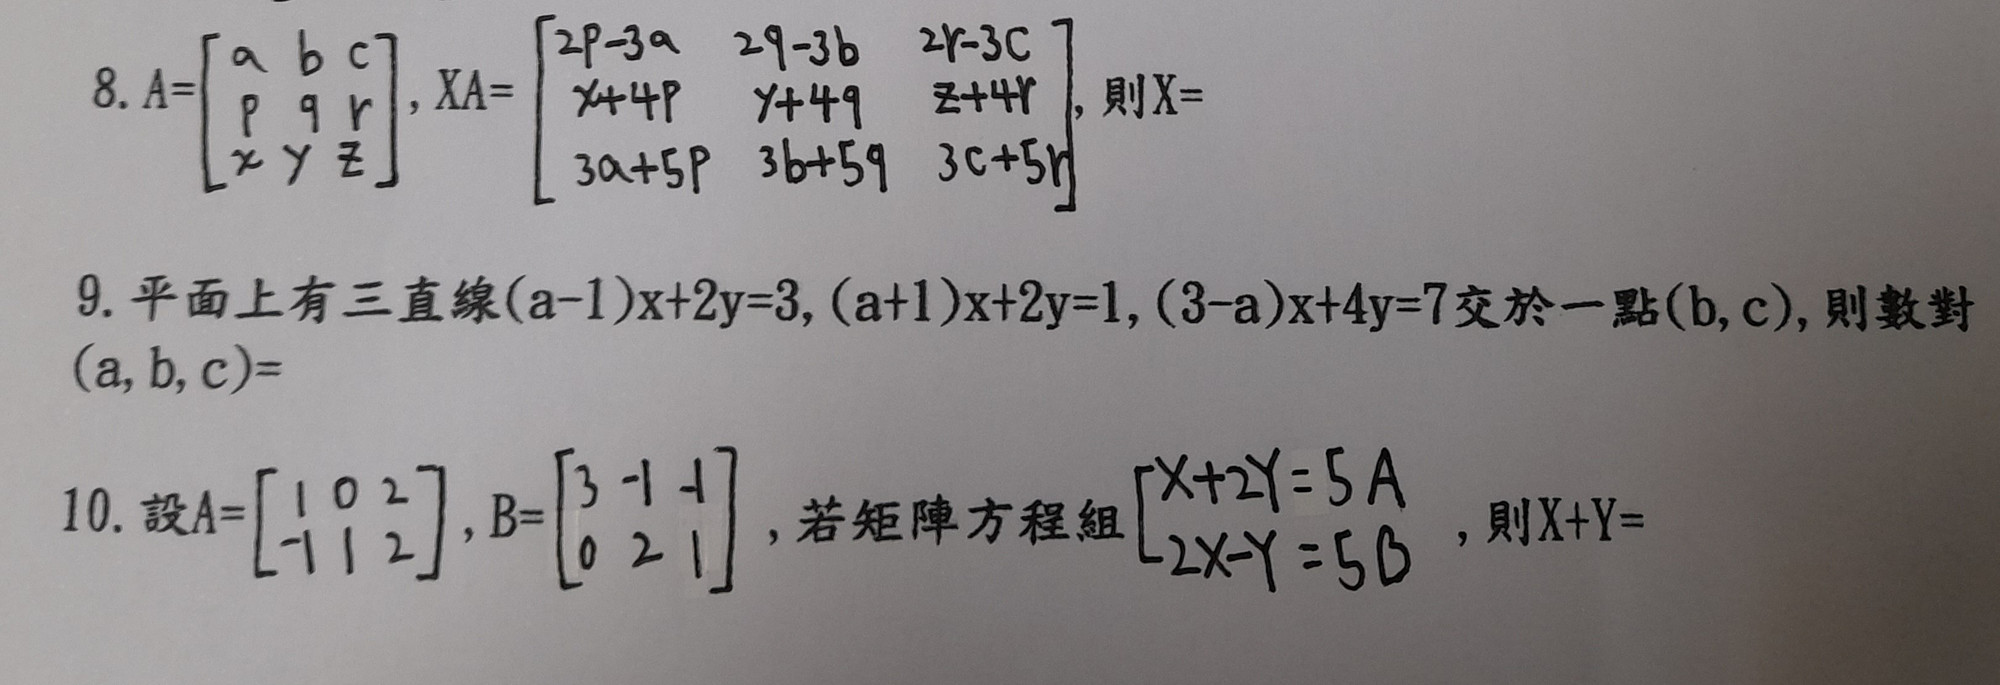 8. A=[a b c
p q r
x y z], XA=[2p-3a 2q-3b 2r-3c
x+4p y+4q z+4r
3a+5p 3b+5q 3c+5r], 則X=
9. 平面上有三直線(a-1)x+2y=3, (a+1)x+2y=1, (3-a)x+4y=7交於一點(b, c), 則數對
(a, b, c)=
10. 設A=[1 0 2
-1 1 2], B=[3 -1 -1
0 2 1], 若矩陣方程組[X+2Y=5A
2X-Y=5B, 則X+Y=